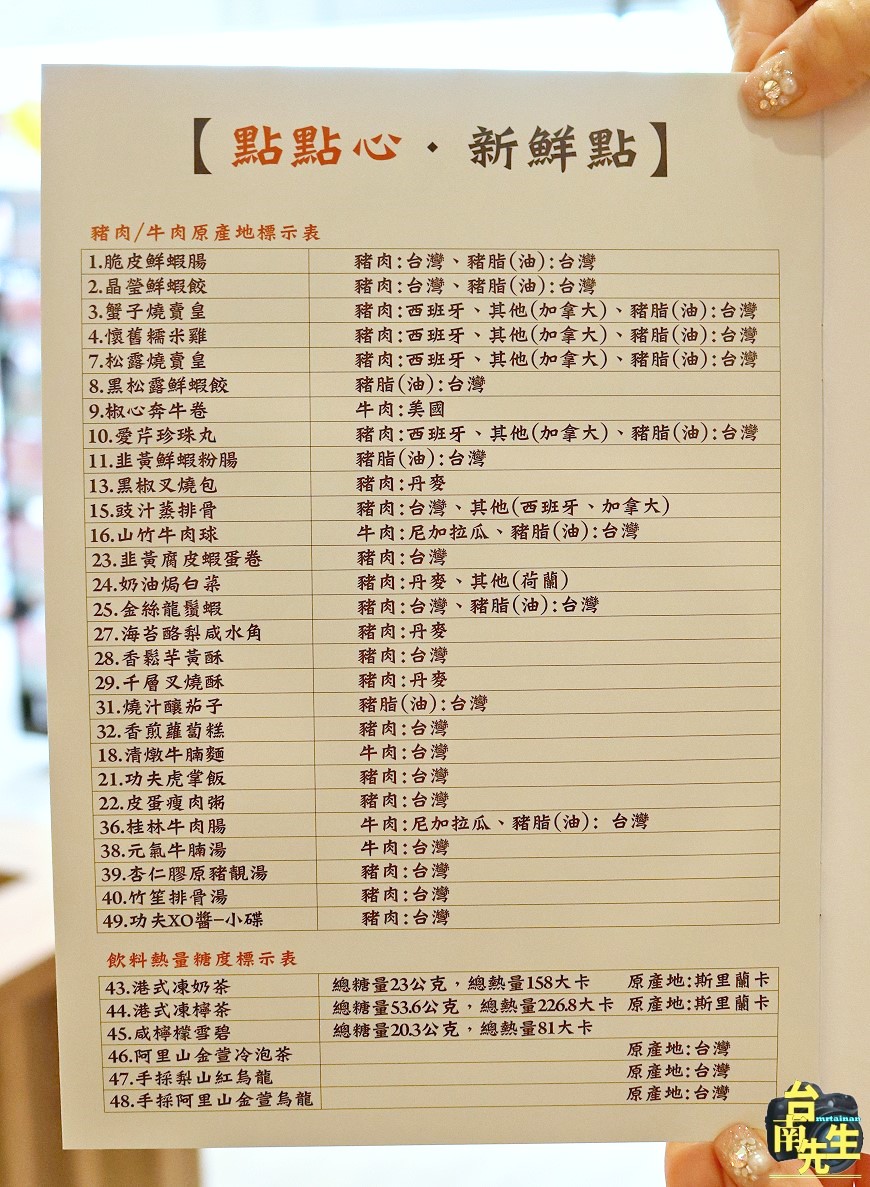 【點點心・新鮮點】
豬肉/牛肉原產地標示表
1.脆皮鮮蝦腸 豬肉:台灣、豬脂(油):台灣
2.晶瑩鮮蝦餃 豬肉:台灣、豬脂(油):台灣
3.蟹子燒賣皇 豬肉:西班牙、其他(加拿大)、豬脂(油):台灣
4.懷舊糯米雞 豬肉:西班牙、其他(加拿大)、豬脂(油):台灣
7.松露燒賣皇 豬肉:西班牙、其他(加拿大)、豬脂(油):台灣
8.黑松露鮮蝦餃 豬脂(油):台灣
9.椒心奔牛卷 牛肉:美國
10.愛芹珍珠丸 豬肉:西班牙、其他(加拿大)、豬脂(油):台灣
11.韭黃鮮蝦粉腸 豬脂(油):台灣
13.黑椒叉燒包 豬肉:丹麥
15.豉汁蒸排骨 豬肉:台灣、其他(西班牙、加拿大)
16.山竹牛肉球 牛肉:尼加拉瓜、豬脂(油):台灣
23.韭黃腐皮蝦蛋卷 豬肉:台灣
24.奶油焗白菜 豬肉:丹麥、其他(荷蘭)
25.金絲龍鬚蝦 豬肉:台灣、豬脂(油):台灣
27.海苔酪梨咸水角 豬肉:丹麥
28.香鬆芋黃酥 豬肉:台灣
29.千層叉燒酥 豬肉:丹麥
31.燒汁釀茄子 豬脂(油):台灣
32.香煎蘿蔔糕 豬肉:台灣
18.清燉牛腩麵 牛肉:台灣
21.功夫虎掌飯 豬肉:台灣
22.皮蛋瘦肉粥 豬肉:台灣
36.桂林牛肉腸 牛肉:尼加拉瓜、豬脂(油): 台灣
38.元氣牛腩湯 牛肉:台灣
39.杏仁膠原豬靚湯 豬肉:台灣
40.竹笙排骨湯 豬肉:台灣
49.功夫XO醬-小碟 豬肉:台灣
飲料熱量糖度標示表
43.港式凍奶茶 總糖量23公克,總熱量158大卡 原產地:斯里蘭卡
44.港式凍檸茶 總糖量53.6公克,總熱量226.8大卡 原產地:斯里蘭卡
45.咸檸檬雪碧 總糖量20.3公克,總熱量81大卡
46.阿里山金萱冷泡茶 原產地:台灣
47.手採梨山紅烏龍 原產地:台灣
48.手採阿里山金萱烏龍 原產地:台灣
台南先生
mrtainan